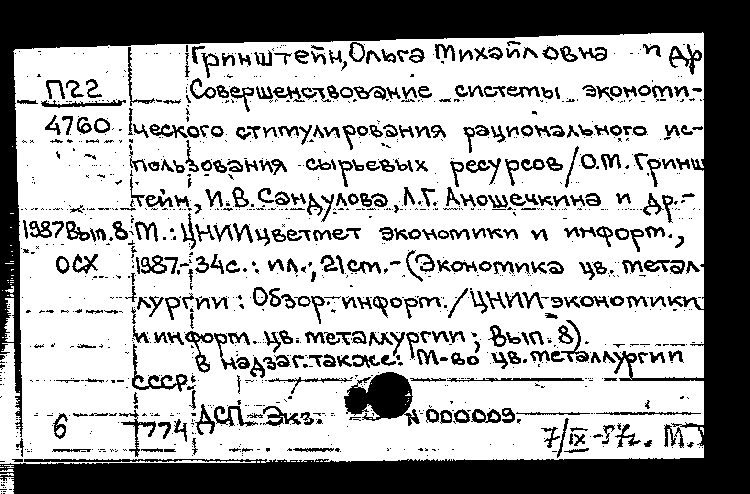 Гринштейн, Ольга Михайловна и др
П22 Совершенствование системы экономи-
4760 ческого стимулирования рационального ис-
пользования сырьевых ресурсов/О.М. Гринш
тейн, И.В. Сандулова, Л.Г. Аношечкина и др.-
1987 Вып. 8 М.: ЦНИИцветмет экономики и информ.,
ОСХ 1987.- 34с.: ил.; 21см.- (Экономика цв. метал-
лургии: Обзор. информ./ЦНИИ экономики
и информ. цв. металлургии; Вып. 8).
В надзаг. также: М-во цв. металлургии
СССР.
6 774 ДСП Экз. N 000009.
7/IX -87г. М.